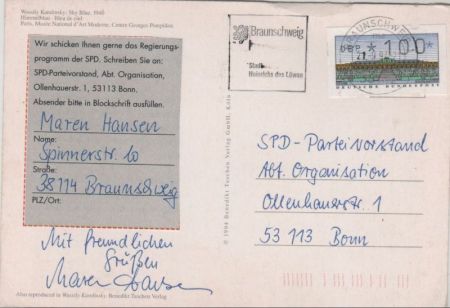 Wassily Kandinsky: Sky Blue, 1940
Himmelblau · Bleu de ciel
Paris, Musée National d'Art Moderne, Centre Georges Pompidou
Wir schicken Ihnen gerne das Regierungs-
programm der SPD. Schreiben Sie an:
SPD-Parteivorstand, Abt. Organisation,
Ollenhauerstr. 1, 53113 Bonn.
Absender bitte in Blockschrift ausfüllen.
Maren Hansen
Name:
Spinnerstr. 10
Straße:
38114 Braunschweig
PLZ/Ort:
Mit freundlichen
Grüßen
Maren Hansen
Also reproduced in Wassily Kandinsky: Benedikt Taschen Verlag
© 1994 Benedikt Taschen Verlag GmbH, Köln
Braunschweig
Stadt
Heinrichs des Löwen
BRAUNSCHWEIG
DBP
*100
DEUTSCHE BUNDESPOST
SPD-Parteivorstand
Abt. Organisation
Ollenhauerstr. 1
53 113 Bonn